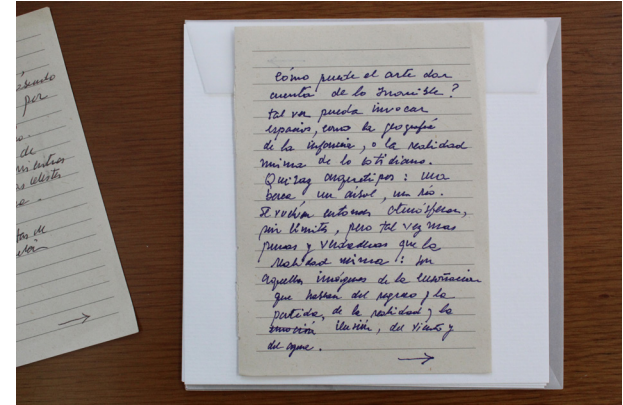 asiendo
por
de
mientras
celestes
de
Cómo puede el arte dar
cuenta de lo Invisible?
tal vez pueda invocar
espacios, como la geografía
de la infancia, o la realidad
misma de lo cotidiano.
Quizás arquetipos: una
barca un árbol, un río.
Se vuelven entonces atmósferas,
sin límites, pero tal vez mas
puras y verdaderas que la
realidad misma: son
aquellas imágenes de la ensoñación
que hablan del regreso y la
partida, de la realidad y la
ilusión, del viento y
del agua.